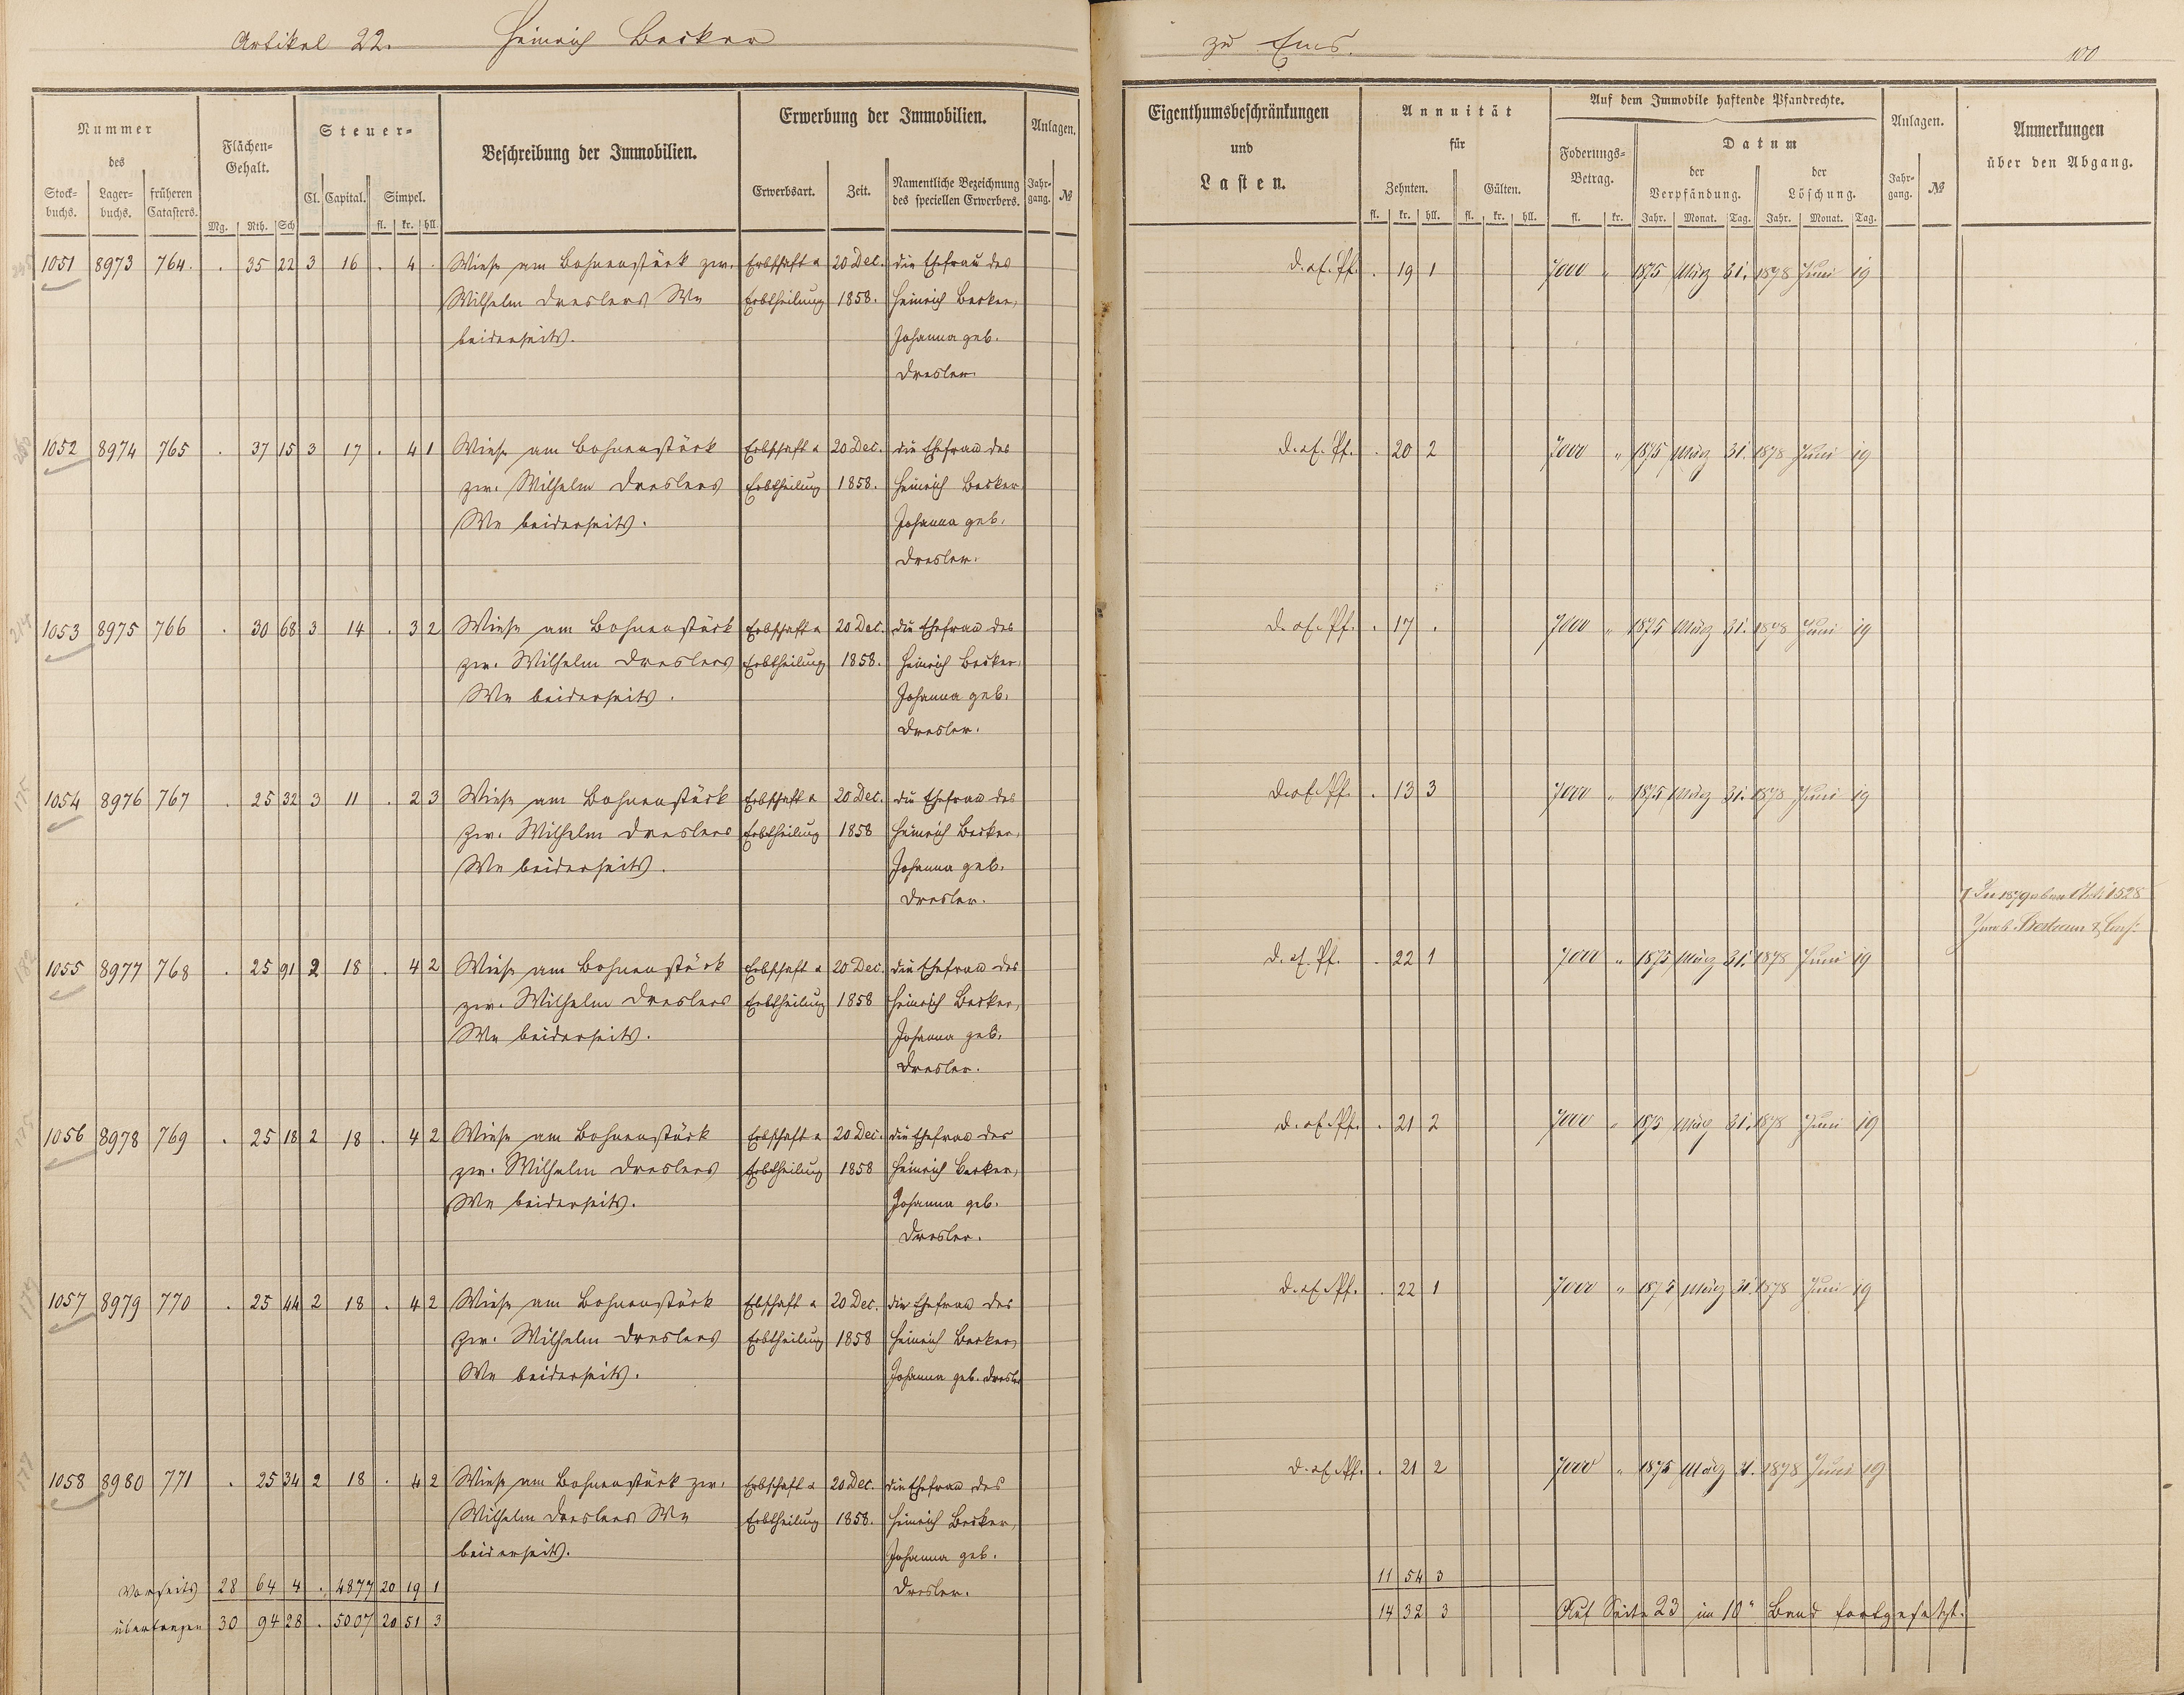 Artikel 22. Heinrich Becker zu Ems. 100
Nummer des
Stock-buchs. Lager-buchs. früheren Catasters.
Flächen-Gehalt.
Mg. Rth. Sch
Steuer-
Cl. Capital. Simpel.
fl. kr. hll.
Beschreibung der Immobilien.
Erwerbung der Immobilien.
Erwerbsart. Zeit. Namentliche Bezeichnung des speciellen Erwerbers.
Anlagen.
Jahr-gang. №
Eigenthumsbeschränkungen
und
Lasten.
Annuität
für
Zehnten. Gülten.
fl. kr. hll. fl. kr. hll.
Auf dem Immobile haftende Pfandrechte.
Foderungs-Betrag.
fl. kr.
Datum
der Verpfändung. der Löschung.
Jahr. Monat. Tag. Jahr. Monat. Tag.
Anlagen.
Jahr-gang. №
Anmerkungen
über den Abgang.
1051 8973 764. . 35 22 3 16 . 4 . Wiese am Bohnenstück zw. Erbschaft u 20 Dec. die Ehefrau des D. ef. Pf. . 19 1 7000 " 1875 März 31. 1878 Juni 19
Wilhelm Dreslers We Erbtheilung 1858. Heinrich Becker,
beiderseits. Johanna geb.
Dresler
1052 8974 765 . 37 15 3 17 . 4 1 Wiese am Bohnenstück Erbschaft u 20 Dec. die Ehefrau des D. ef. Pf. . 20 2 7000 " 1875 März 31. 1878 Juni 19
zw. Wilhelm Dreslers Erbtheilung 1858. Heinrich Becker
We beiderseits. Johanna geb.
Dresler.
1053 8975 766 . 30 68 3 14 . 3 2 Wiese am Bohnenstück Erbschaft u 20 Dec. die Ehefrau des D. ef. Pf. . 17 . 7000 " 1875 März 31. 1878 Juni 19
zw. Wilhelm Dreslers Erbtheilung 1858. Heinrich Becker,
We beiderseits. Johanna geb.
Dresler.
1054 8976 767 . 25 32 3 11 . 2 3 Wiese am Bohnenstück Erbschaft u 20 Dec. die Ehefrau des D. ef. Pf. . 13 3 7000 " 1875 März 31. 1878 Juni 19
zw. Wilhelm Dreslers Erbtheilung 1858 Heinrich Becker,
We beiderseits. Johanna geb.
Dresler.
1528
1055 8977 768 . 25 91 2 18 . 4 2 Wiese am Bohnenstück Erbschaft u 20 Dec. die Ehefrau des D. ef. Pf. . 22 1 7000 " 1875 März 31. 1878 Juni 19
zw. Wilhelm Dreslers Erbtheilung 1858 Heinrich Becker,
We beiderseits. Johanna geb.
Dresler.
1056 8978 769 . 25 18 2 18 . 4 2 Wiese am Bohnenstück Erbschaft u 20 Dec. die Ehefrau des D. ef. Pf. . 21 2 7000 " 1875 März 31. 1878 Juni 19
zw. Wilhelm Dreslers Erbtheilung 1858 Heinrich Becker,
We beiderseits. Johanna geb.
Dresler.
1057 8979 770 . 25 44 2 18 . 4 2 Wiese am Bohnenstück Ebschaft u 20 Dec. die Ehefrau des D. ef. Pf. . 22 1 7000 " 1875 März 31. 1878 Juni 19
zw. Wilhelm Dreslers Erbtheilung 1858 Heinrich Becker,
We beiderseits. Johanna geb. Dresler
1058 8980 771 . 25 34 2 18 . 4 2 Wiese am Bohnenstück zw. Erbschaft u 20 Dec. die Ehefrau des D. ef. Pf. . 21 2 7000 " 1875 März 31. 1878 Juni 19
Wilhelm Dreslers We Erbtheilung 1858. Heinrich Becker,
beiderseits. Johanna geb.
Vorseits 28 64 4 . 4877 20 19 1 Dresler. 11 54 3
übertragen 30 94 28 . 5007 20 51 3 14 32 3 Auf Seite 23 im 10n Band fortgesetzt.